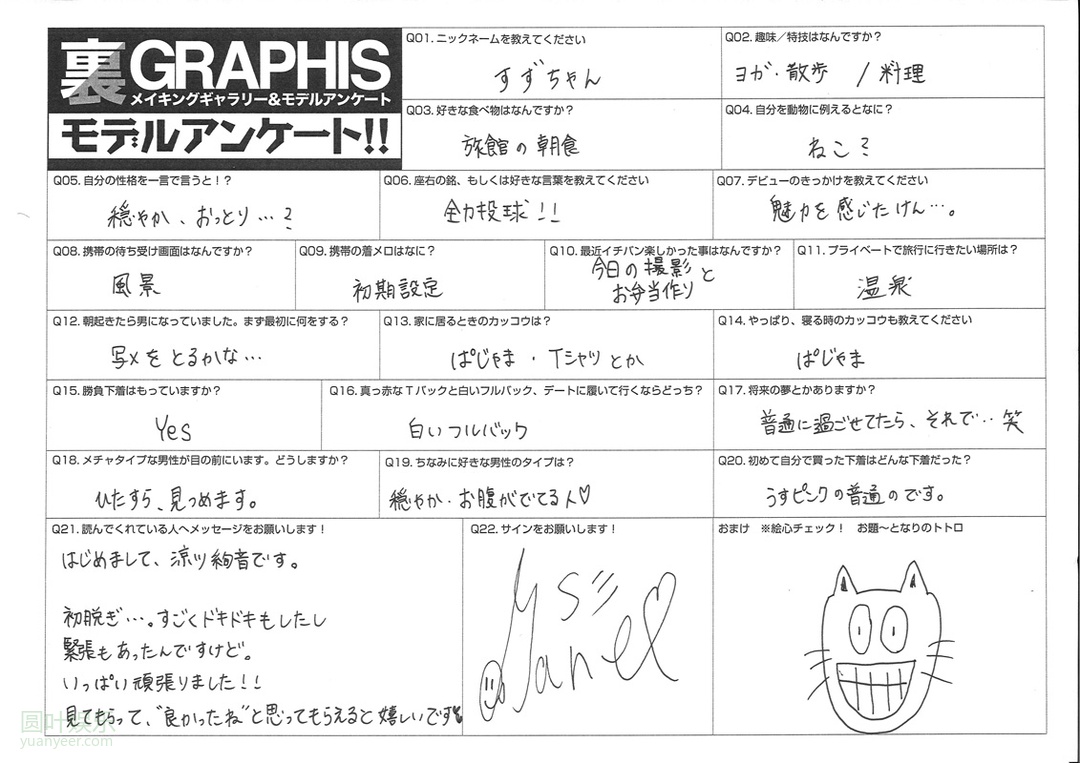 裏GRAPHIS
メイキングギャラリー&モデルアンケート
モデルアンケート!!
Q01. ニックネームを教えてください
すずちゃん
Q02. 趣味／特技はなんですか？
ヨガ・散歩 / 料理
Q03. 好きな食べ物はなんですか？
旅館の朝食
Q04. 自分を動物に例えるとなに？
ねこ？
Q05. 自分の性格を一言で言うと！？
穏やか、おっとり…？
Q06. 座右の銘、もしくは好きな言葉を教えてください
全力投球！！
Q07. デビューのきっかけを教えてください
魅力を感じたけん…。
Q08. 携帯の待ち受け画面はなんですか？
風景
Q09. 携帯の着メロはなに？
初期設定
Q10. 最近イチバン楽しかった事はなんですか？
今日の撮影と
お弁当作り
Q11. プライベートで旅行に行きたい場所は？
温泉
Q12. 朝起きたら男になっていました。まず最初に何をする？
写メをとるかな…
Q13. 家に居るときのカッコウは？
ぱじゃま・Tシャツとか
Q14. やっぱり、寝る時のカッコウも教えてください
ぱじゃま
Q15. 勝負下着はもっていますか？
Yes
Q16. 真っ赤なTバックと白いフルバック、デートに履いて行くならどっち？
白いフルバック
Q17. 将来の夢とかありますか？
普通に過ごせてたら、それで‥笑
Q18. メチャタイプな男性が目の前にいます。どうしますか？
ひたすら、見つめます。
Q19. ちなみに好きな男性のタイプは？
穏やか・お腹がでてる人♡
Q20. 初めて自分で買った下着はどんな下着だった？
うすピンクの普通のです。
Q21. 読んでくれている人へメッセージをお願いします！
はじめまして、涼ツ絢音です。
初脱ぎ…。すごくドキドキもしたし
緊張もあったんですけど。
いっぱい頑張りました！！
見てもらって、"良かったね"と思ってもらえると嬉しいです
Q22. サインをお願いします！
おまけ ※絵心チェック！ お題〜となりのトトロ
圆叶娱乐
yuanyeer.com